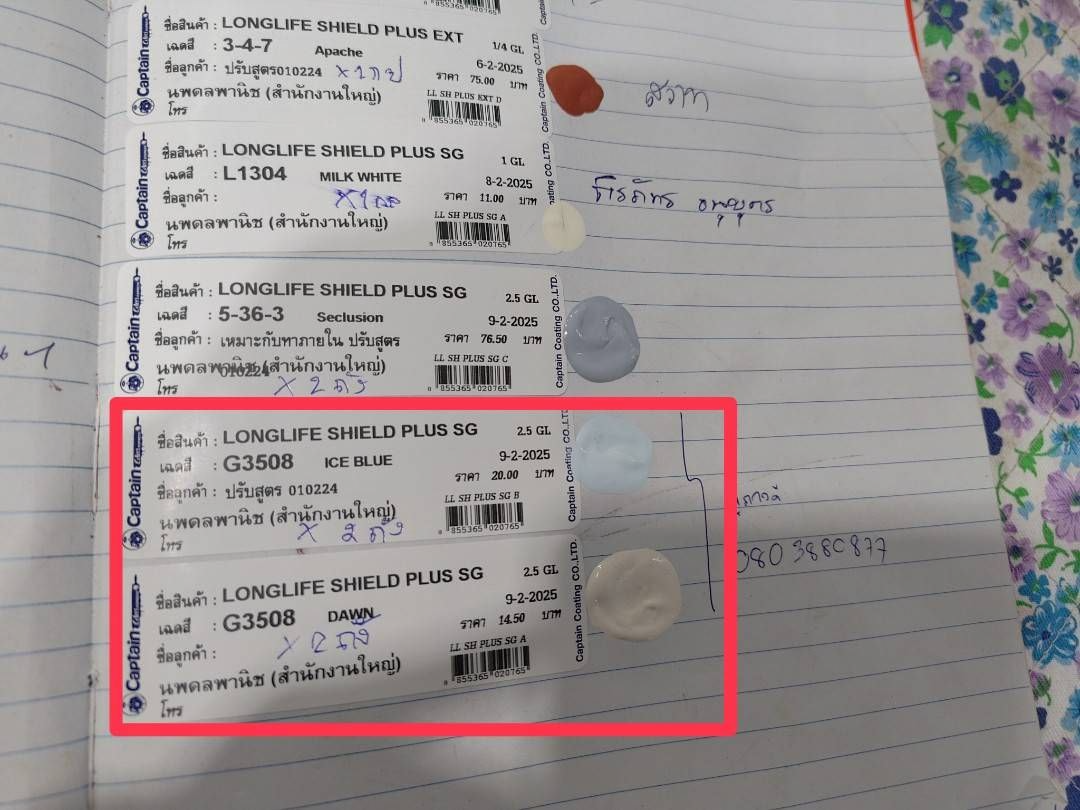 855365 020765
Captain Coating CO.,LTD.
Captain
ชื่อสินค้า : LONGLIFE SHIELD PLUS EXT 1/4 GL
เฉดสี : 3-4-7 Apache 6-2-2025
ชื่อลูกค้า : ปรับสูตร010224 x 1 ราคา 75.00 บาท
นพดลพานิช (สำนักงานใหญ่) LL SH PLUS EXT D
โทร 9 855365 020765
Captain Coating CO.,LTD.
Captain
ชื่อสินค้า : LONGLIFE SHIELD PLUS SG 1 GL
เฉดสี : L1304 MILK WHITE 8-2-2025
ชื่อลูกค้า : x 1 ราคา 11.00 บาท
นพดลพานิช (สำนักงานใหญ่) LL SH PLUS SG A
โทร 9 855365 020765
ating CO.,LTD.
Captain
ชื่อสินค้า : LONGLIFE SHIELD PLUS SG 2.5 GL
เฉดสี : 5-36-3 Seclusion 9-2-2025
ชื่อลูกค้า : เหมาะกับทาภายใน ปรับสูตร ราคา 76.50 บาท
010224
นพดลพานิช (สำนักงานใหญ่) LL SH PLUS SG C
โทร x 2 ถัง 9 855365 020765
Captain Coating CO.,LTD.
Captain
ชื่อสินค้า : LONGLIFE SHIELD PLUS SG 2.5 GL
เฉดสี : G3508 ICE BLUE 9-2-2025
ชื่อลูกค้า : ปรับสูตร 010224 ราคา 20.00 บาท
นพดลพานิช (สำนักงานใหญ่) LL SH PLUS SG B
โทร x 2 ถัง 9 855365 020765
Captain Coating CO.,LTD.
Captain
ชื่อสินค้า : LONGLIFE SHIELD PLUS SG 2.5 GL
เฉดสี : G3508 DAWN 9-2-2025
ชื่อลูกค้า : x 2 ถัง ราคา 14.50 บาท
นพดลพานิช (สำนักงานใหญ่) LL SH PLUS SG A
โทร 9 855365 020765
Captain Coating CO.,LTD.
080 3880877